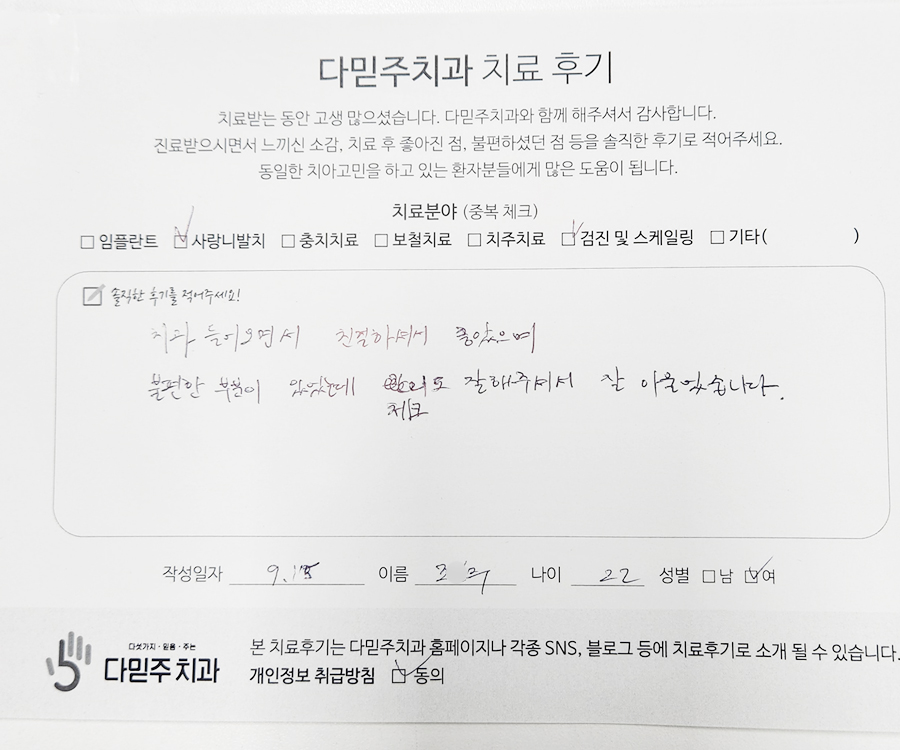 다믿주치과 치료 후기
치료받는 동안 고생 많으셨습니다. 다믿주치과와 함께 해주셔서 감사합니다.
진료받으시면서 느끼신 소감, 치료 후 좋아진 점, 불편하셨던 점 등을 솔직한 후기로 적어주세요.
동일한 치아고민을 하고 있는 환자분들에게 많은 도움이 됩니다.
치료분야 (중복 체크)
임플란트 사랑니발치 충치치료 보철치료 치주치료 검진 및 스케일링 기타( )
솔직한 후기를 적어주세요!
치과 들어오면서 친절하셔서 좋았으며
불편한 부분이 있었는데 잘해주셔서 잘 아물었습니다.
체크
작성일자 9. 이름 나이 22 성별 남 여
다섯가지·믿음·주는
다믿주치과
본 치료후기는 다믿주치과 홈페이지나 각종 SNS, 블로그 등에 치료후기로 소개 될 수 있습니다.
개인정보 취급방침 동의